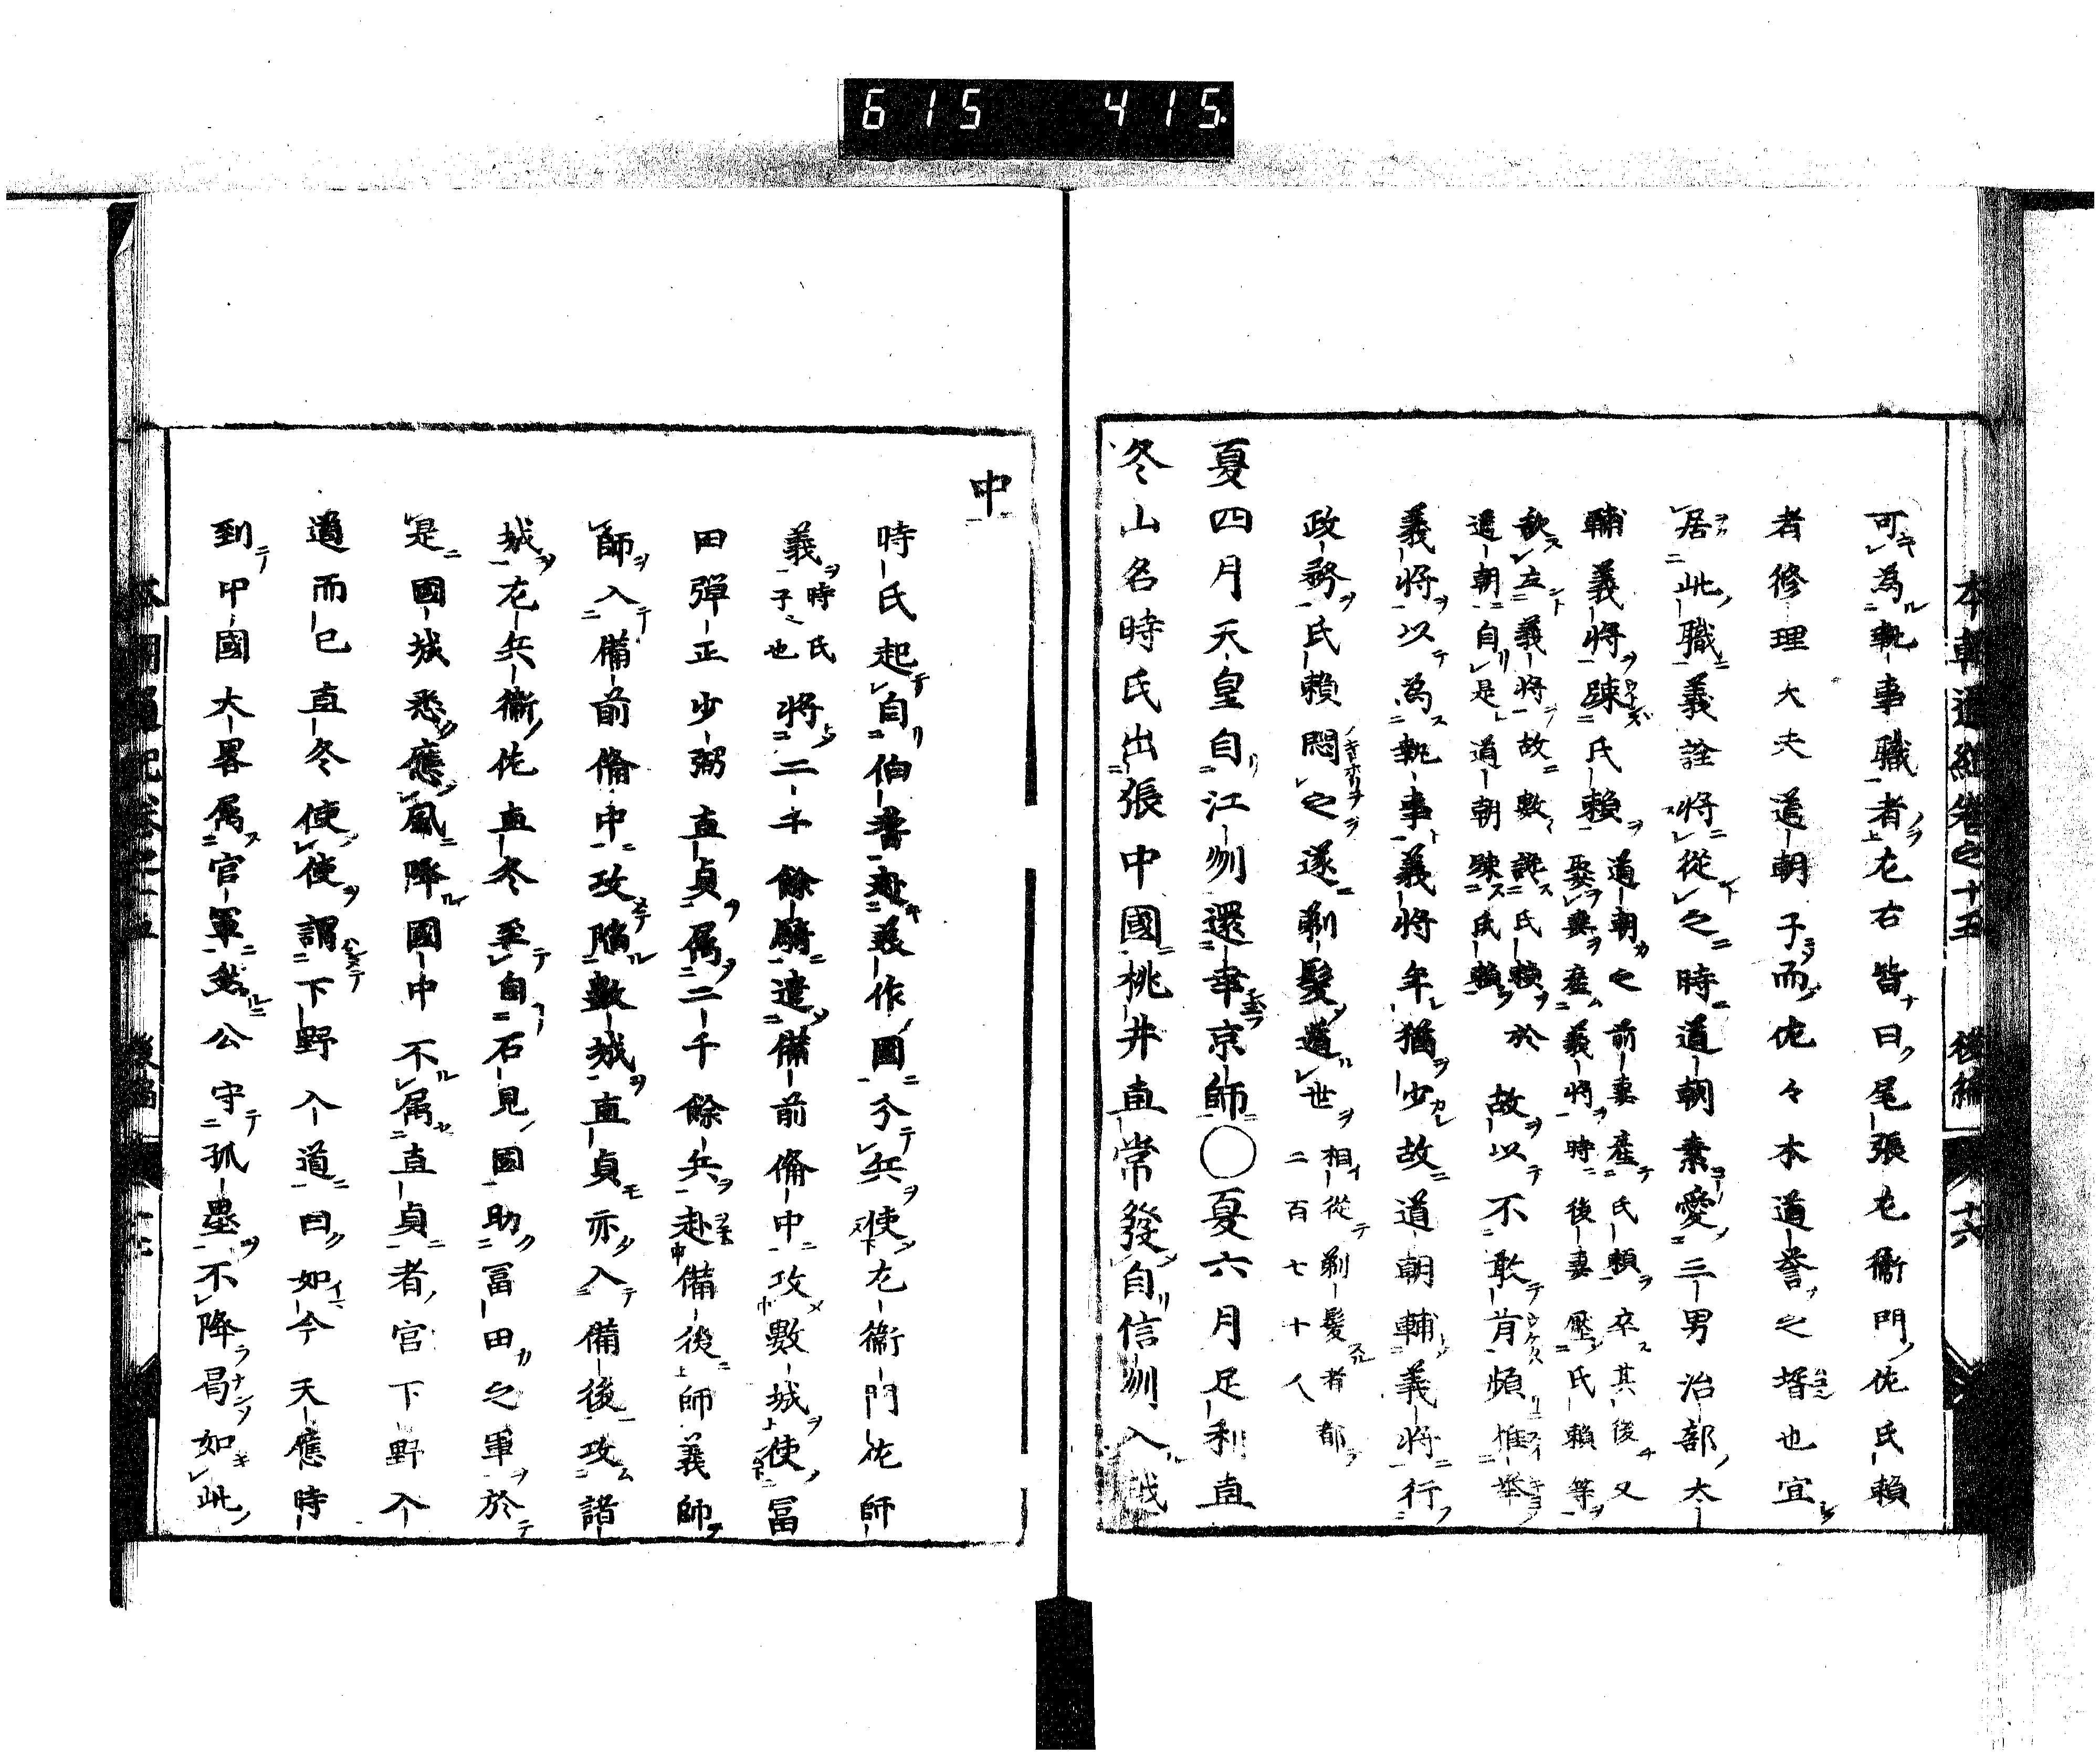 615 415.
本朝通紀卷之十五 後編 十六
可為執事職者左右皆曰尾張左衞門佐氏賴
者修理大夫道朝子而佐々木道誉之壻也宜
居此職義詮將從之時道朝素愛三男治部大
輔義將踈氏賴道朝之前妻產氏賴卒其後又
娶妻產義將時後妻壓氏賴等
欲立義將故數譖氏賴於
道朝自是道朝踈氏賴故以不敢肯頻惟舉
義將以為執事義將年猶少故道朝輔義將行
政務氏賴悶之遂剃髮遁世相從剃髮者都
二百七十人
夏四月天皇自江州還幸京師○夏六月足利直
冬山名時氏出張中國桃井直常發自信州入越
中
時氏起自伯耆赴美作國分兵使左衞門佐師
義時氏
子也將二千餘騎遣備前備中攻數城使冨
田彈正少弼直貞属二千餘兵赴備後師義師
師入備前備中攻陷數城直貞亦入備後攻諸
城左兵衞佐直冬至自石見國助冨田之軍於
是國城悉應風降國中不属直貞者宮下野入
道而已直冬使使謂下野入道曰如今天應時
到中國大畧属官軍然公守孤壘不降曷如此